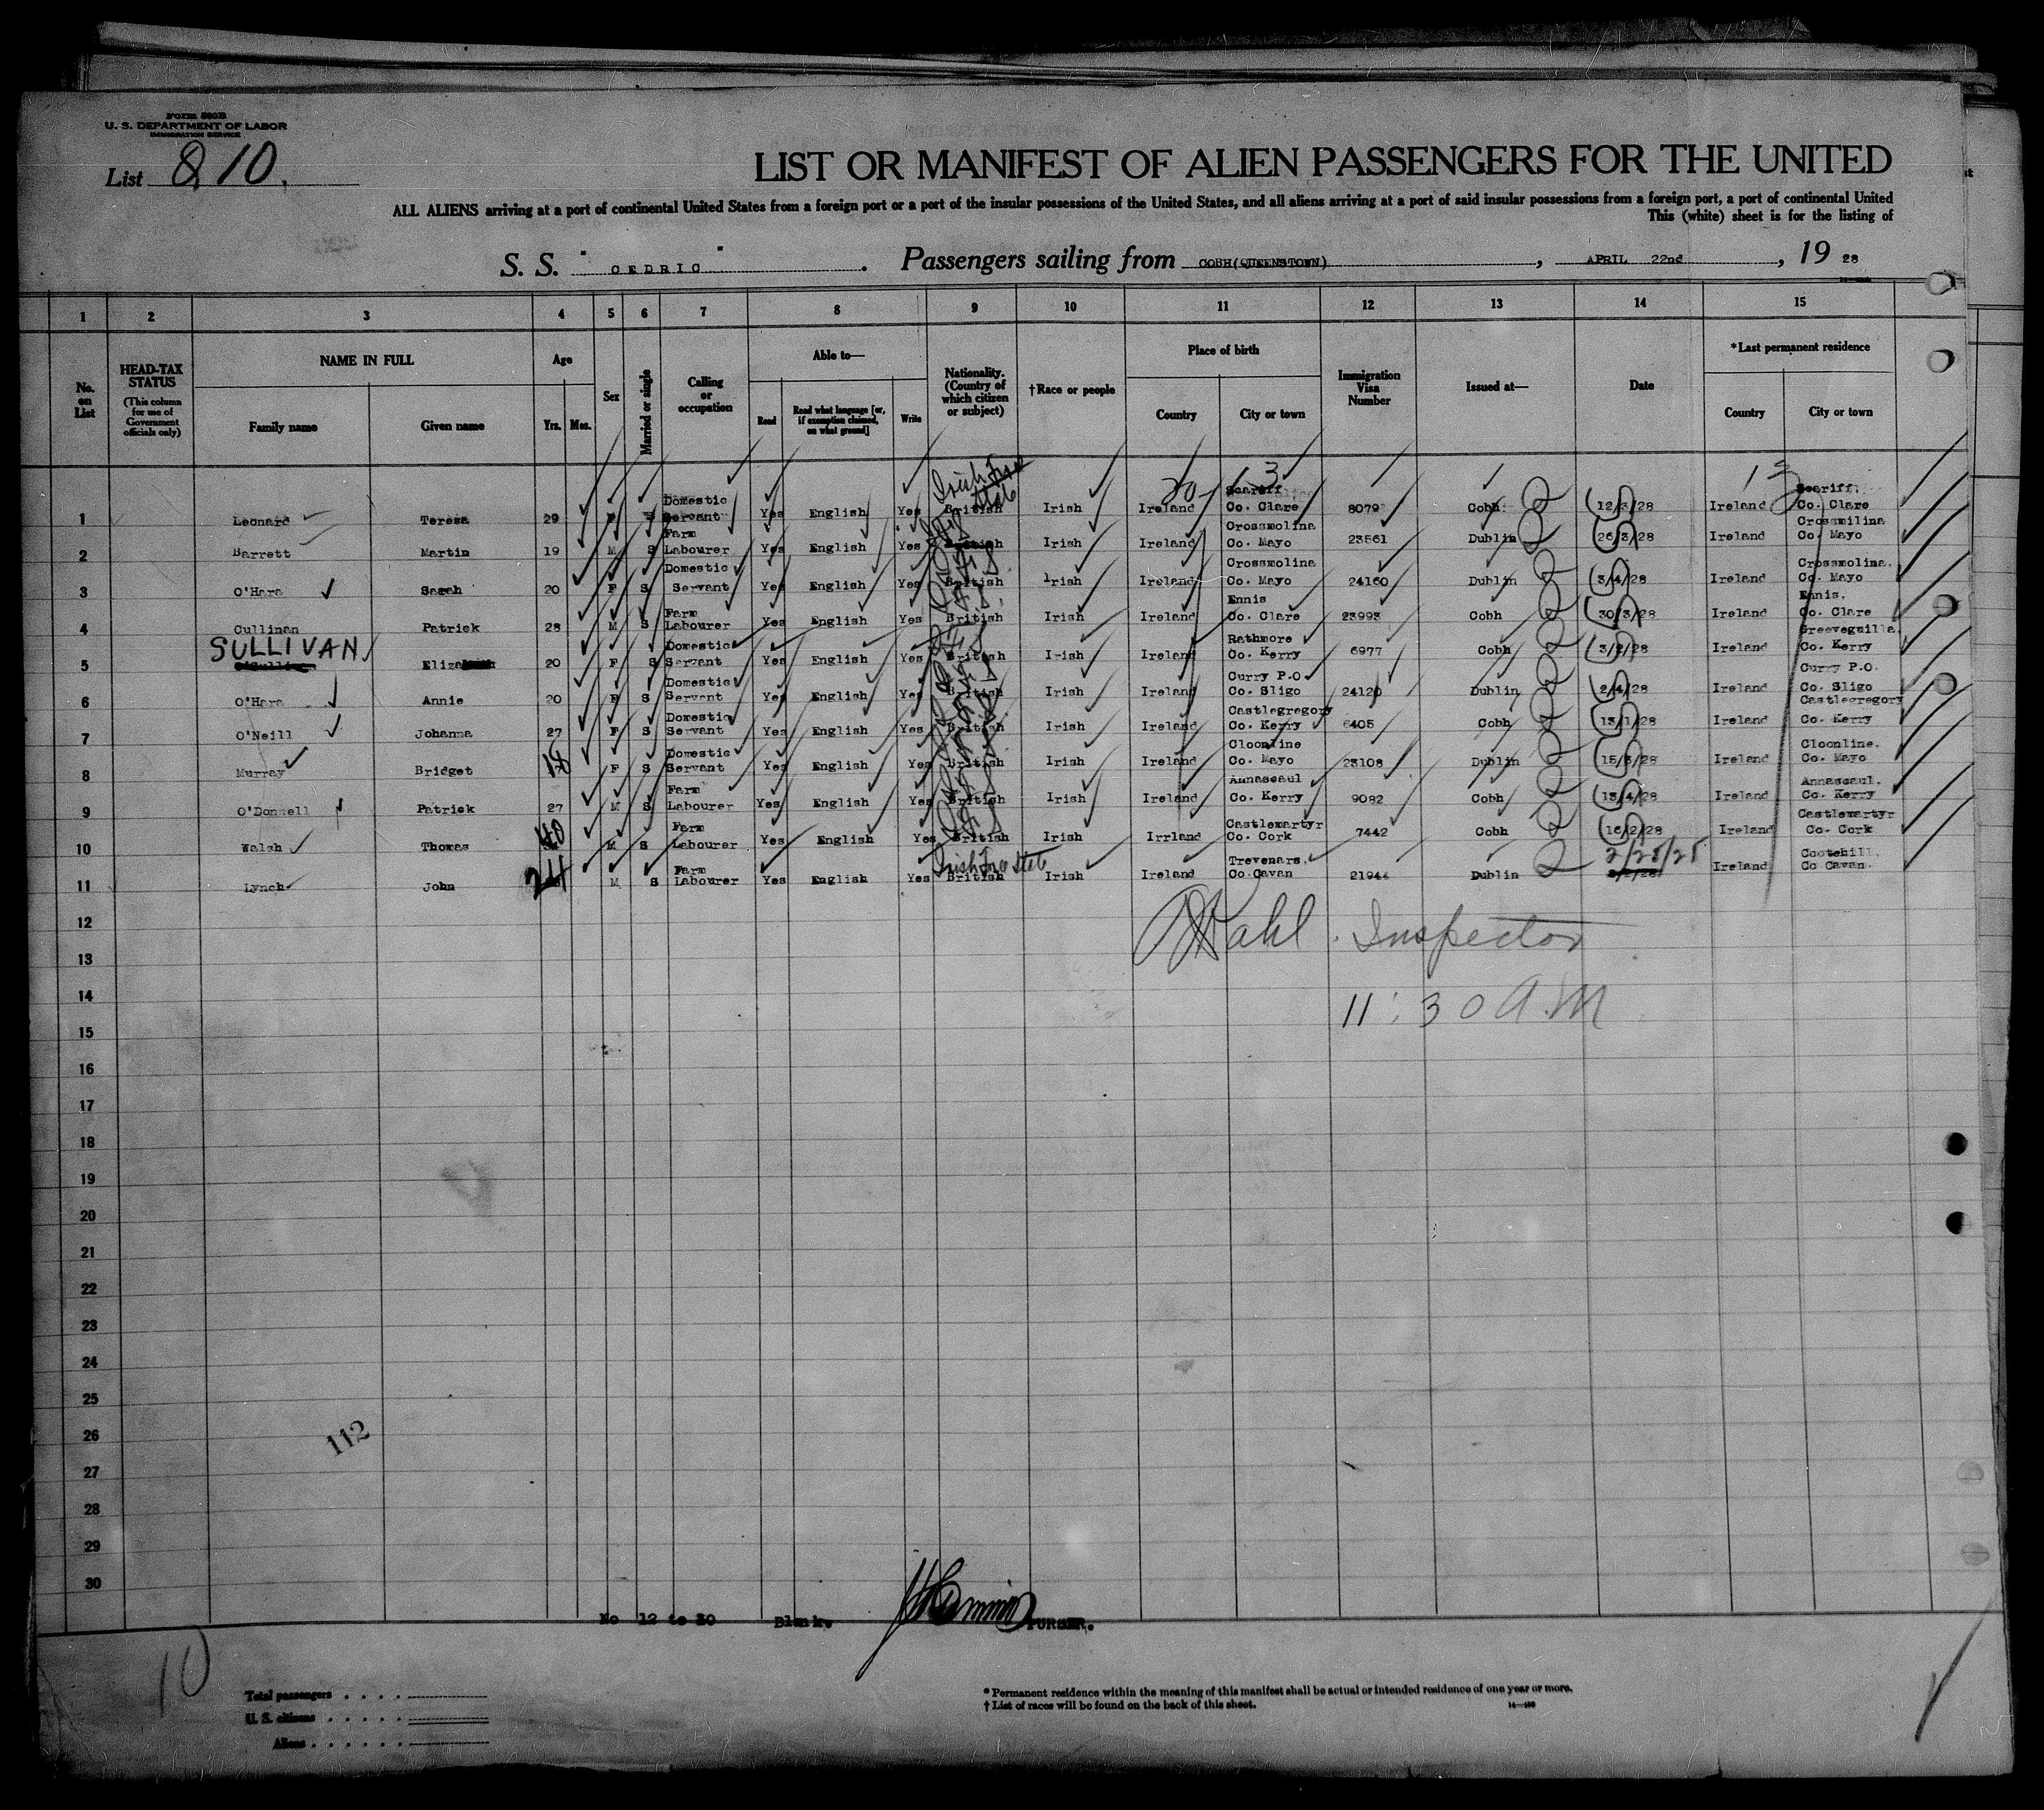 Form 500B
U. S. DEPARTMENT OF LABOR
IMMIGRATION SERVICE
List 810.
LIST OR MANIFEST OF ALIEN PASSENGERS FOR THE UNITED
ALL ALIENS arriving at a port of continental United States from a foreign port or a port of the insular possessions of the United States, and all aliens arriving at a port of said insular possessions from a foreign port, a port of continental United
This (white) sheet is for the listing of
S. S. " CEDRIC " . Passengers sailing from COBH(QUEENSTOWN) , APRIL 22nd , 19 28
1 2 3 4 5 6 7 8 9 10 11 12 13 14 15
No. on List
HEAD-TAX STATUS (This column for use of Government officials only)
NAME IN FULL Family name Given name
Age Yrs. Mos.
Sex
Married or single
Calling or occupation
Able to— Read Read what language [or, if exemption claimed, on what ground] Write
Nationality. (Country of which citizen or subject)
†Race or people
Place of birth Country City or town
Immigration Visa Number
Issued at—
Date
*Last permanent residence Country City or town
1 Leonard Teresa 29 F S Domestic Servant Yes English Yes British Irish Free State Irish Ireland Scariff Co. Clare 8079 Cobh 12/3/28 Ireland Scariff. Co. Clare
2 Barrett Martin 19 M S Farm Labourer Yes English Yes British Irish Ireland Crossmolina Co. Mayo 23561 Dublin 26/3/28 Ireland Crossmilina Co. Mayo
3 O'Hara Sarah 20 F S Domestic Servant Yes English Yes British Irish Ireland Crossmolina Co. Mayo 24160 Dublin 3/4/28 Ireland Crossmolina. Co. Mayo
4 Cullinan Patrick 28 M S Farm Labourer Yes English Yes British Irish Ireland Ennis Co. Clare 23993 Cobh 30/3/28 Ireland Ennis. Co. Clare
SULLIVAN
5 Eliza 20 F S Domestic Servant Yes English Yes British Irish Ireland Rathmore Co. Kerry 6977 Cobh 3/2/28 Ireland Greeveguilla. Co. Kerry
6 O'Hara Annie 20 F S Domestic Servant Yes English Yes British Irish Ireland Curry P.O. Co. Sligo 24120 Dublin 2/4/28 Ireland Curry P.O. Co. Sligo
7 O'Neill Johanna 27 F S Domestic Servant Yes English Yes British Irish Ireland Castlegregory Co. Kerry 6405 Cobh 13/1/28 Ireland Castlegregory Co. Kerry
8 Murray Bridget 18 F S Domestic Servant Yes English Yes British Irish Ireland Cloonline Co. Mayo 23108 Dublin 15/3/28 Ireland Cloonline. Co. Mayo
9 O'Donnell Patrick 27 M S Farm Labourer Yes English Yes British Irish Ireland Annascaul Co. Kerry 9082 Cobh 13/4/28 Ireland Annascaul. Co. Kerry
10 Walsh Thomas 40 M S Farm Labourer Yes English Yes British Irish Irrland Castlemartyr Co. Cork 7442 Cobh 16/2/28 Ireland Castlemartyr Co. Cork
11 Lynch John 24 M S Farm Labourer Yes English Yes British Irish Free State Irish Ireland Trevenars. Co. Cavan 21944 Dublin 2/25/28 Ireland Cootehill. Co Cavan.
12
Wahl. Inspector
13
14
11:30 A.M
15
16
17
18
19
20
21
22
23
24
25
26
112
27
28
29
30
No 12 to 30 Blank. PURSER.
10
Total passengers
U. S. citizens
Aliens
* Permanent residence within the meaning of this manifest shall be actual or intended residence of one year or more.
† List of races will be found on the back of this sheet.